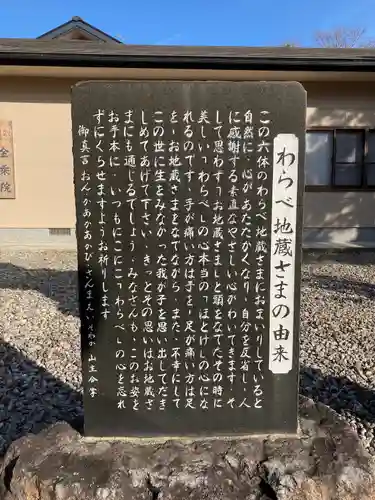 わらべ地蔵さまの由来
この六体のわらべ地蔵さまにおまいりしていると
自然に、心があたたかくなり、自分を反省し、人
に感謝する素直なやさしい心がわいてきます、そ
して思わず「お地蔵さま」と頭をなでたその時に
美しい「わらべ」の心本当の「ほとけ」の心にな
れるのです、手が痛い方は手を、足が痛い方は足
を、お地蔵さまをなでながら、また、不幸にして
この世に生をみなかった我が子を思い出してくだ
しめてあげて下さい、きっとその思いはお地蔵さ
まにも通じるでしょう、みなさんも、このお姿を
お手本に、いつもにこにこ「わらべ」の心を忘れ
ずにくらせますようお祈りします、
御真言 おんかあかあかび さんまえい そわか
山主合掌
院